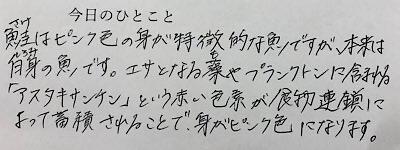 今日のひとこと
さけ
鮭はピンク色の身が特徴的な魚ですが、本来は
しろみ も
白身の魚です。エサとなる藻やプランクトンに含まれる
「アスタキサンチン」という赤い色素が食物連鎖に
よって蓄積されることで、身がピンク色になります。